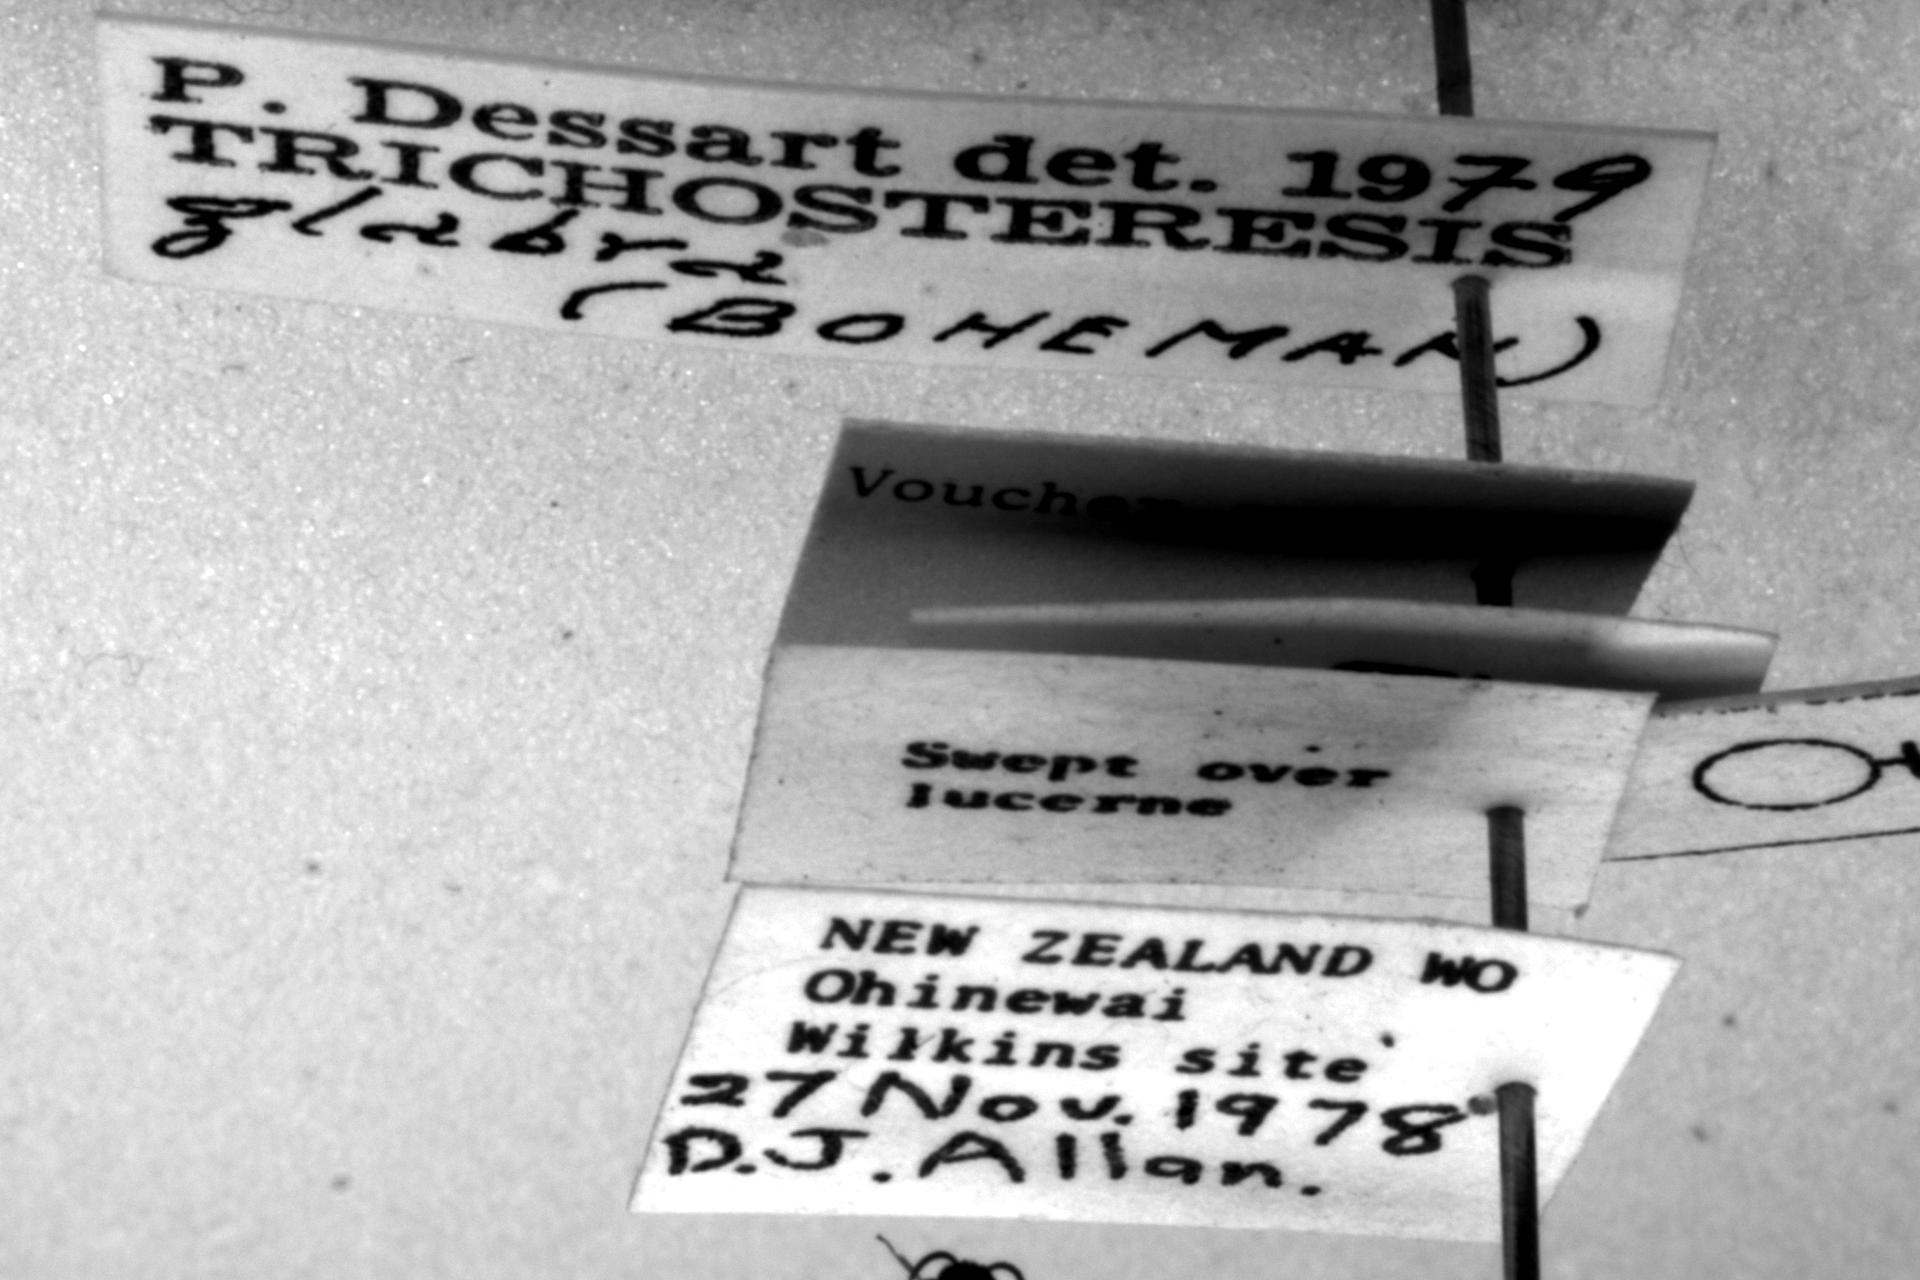 P. Dessart det. 1979
TRICHOSTERESIS
glabra
(BOHEMAN)
Voucher
Swept over
lucerne
NEW ZEALAND WO
Ohinewai
Wilkins site
27 Nov. 1978
D.J. Allan.